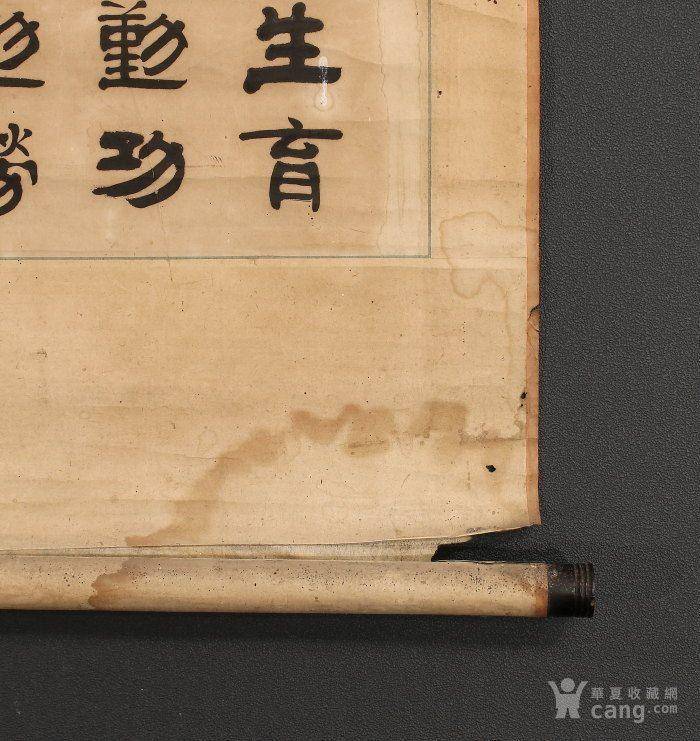 生育
功
勞
華夏收藏網
cang.com